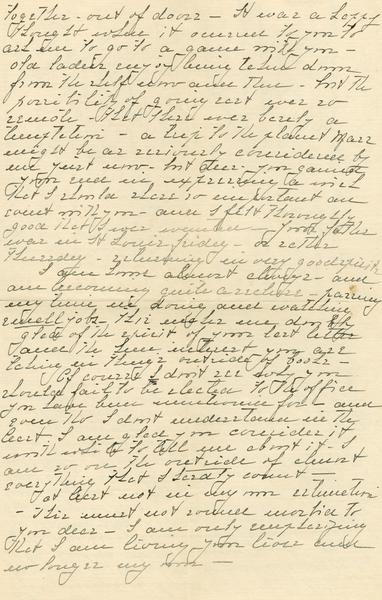 together - out of doors - It was a happy
thought when it occurred to you to
ask me to go to a game with you -
old ladies enjoy being taken down
from the shelf now and then - but the
possibility of going east was so
remote - that there was barely a
temptation - a trip to the planet Mars
might be as seriously considered by
me just now - but dear - you
your end in expressing a wish
that I should share so important an
event with you - and I felt thoroughly
good that I was wanted - Your father
was in St Louis Friday - or rather
Thursday - returning in very good spirits
I am home almost always - and
am becoming quite - passing
my time in doing and watching
small jobs - This makes me doubly
glad of the spirit of your last letter
and the keen interest you are
taking in things outside of books -
Of course I don't see why you
should fail to be elected to the office
you have been mentioned for - and
even tho I don't understand in the
least - I am glad you consider it
worth while to tell me about it - I
am so on the outside of almost
everything that I scarcely count -
at least not in my own estimation
- This must not sound morbid to
you dear - I am only emphasizing
that I am living your lives and
no longer my own -